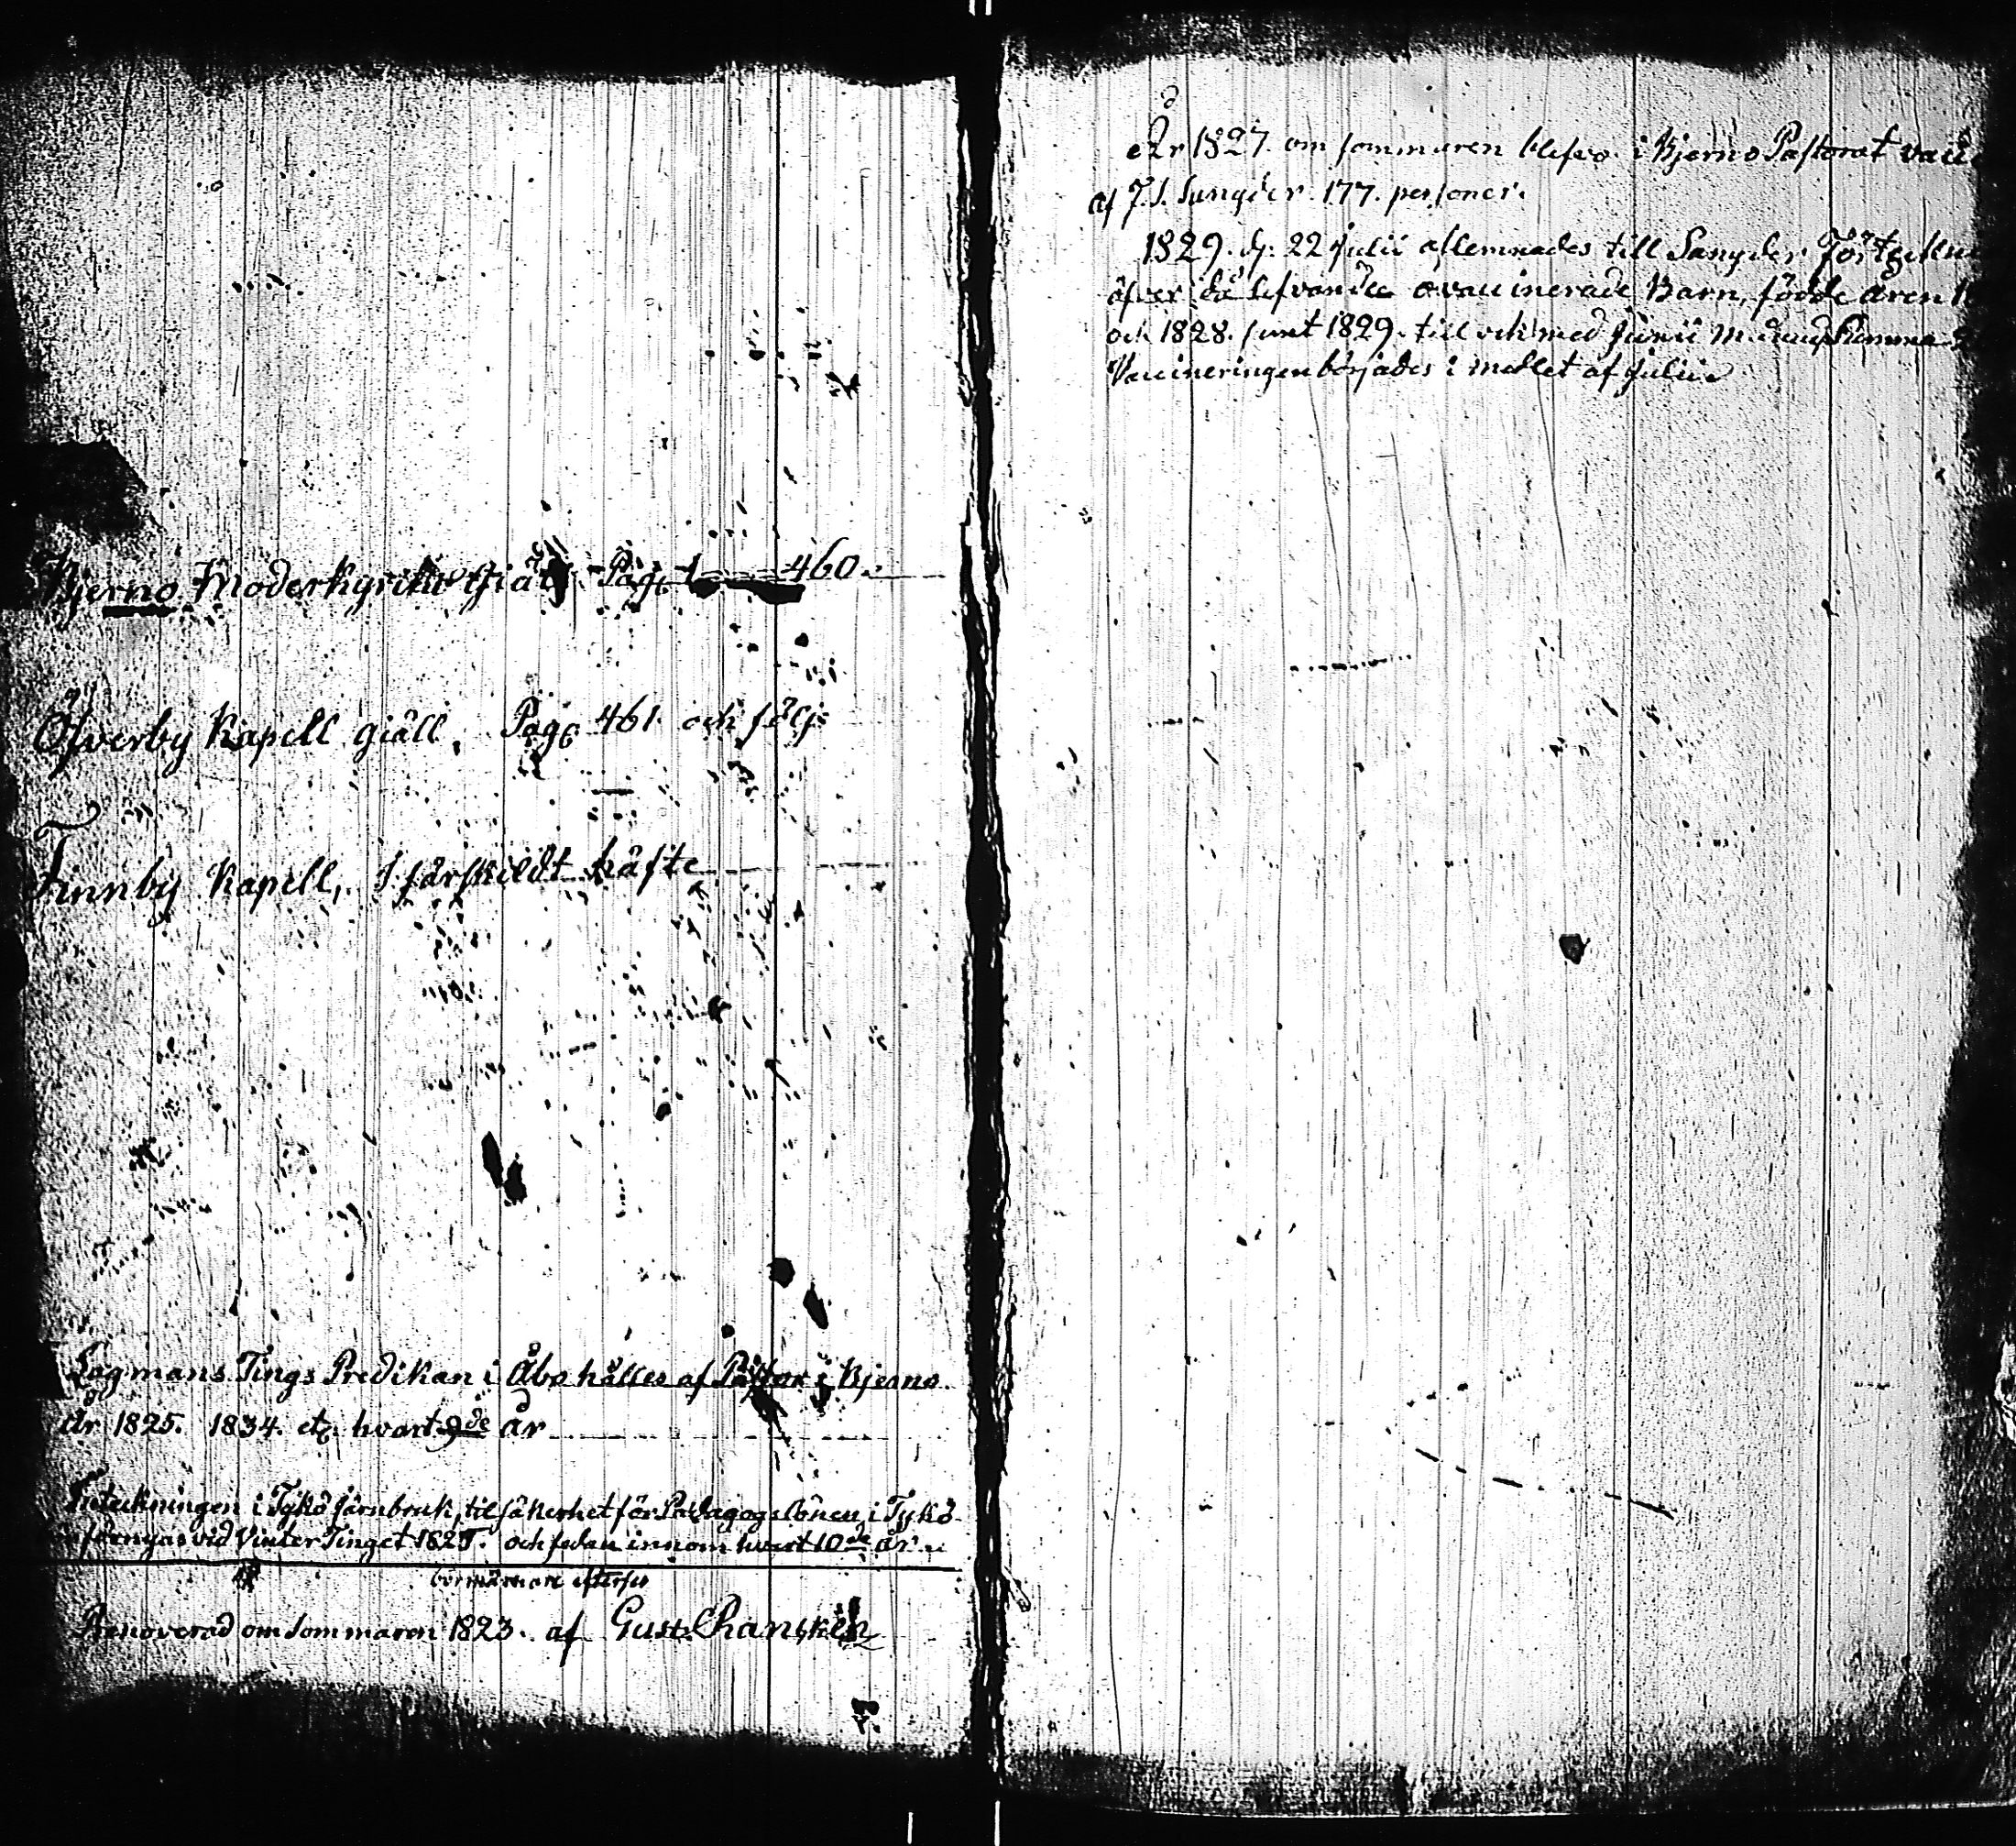 Bjerno Moderkyrko Giäll Pag. 1 — 460.
Öfverby Kapell giäll, Pag. 461 och följ:
Finnby Kapell, I särskildt häfte
Lagmans Tings Predikan i Åbo hålles af Pastor i Bjerno
år 1825. 1834. etc. hvart 9de år
Inteckningen i Tykö järnbruk, til säkerhet för Pædagogslönen i Tykö
förnyas vid Vinter Tinget 1825. och sedan innom hvart 10de år
Renoverad om Sommaren 1823. af Gust.
År 1827. om sommaren blefvo i Bjerno Pastorat
af J. S. 177. personer.
1829. d. 22 Julii aflemnades till
öfver då lefvande ovaccinerade Barn, födde åren
och 1828. samt 1829. till och med Junii
Vaccineringen börjades i medlet af Julii